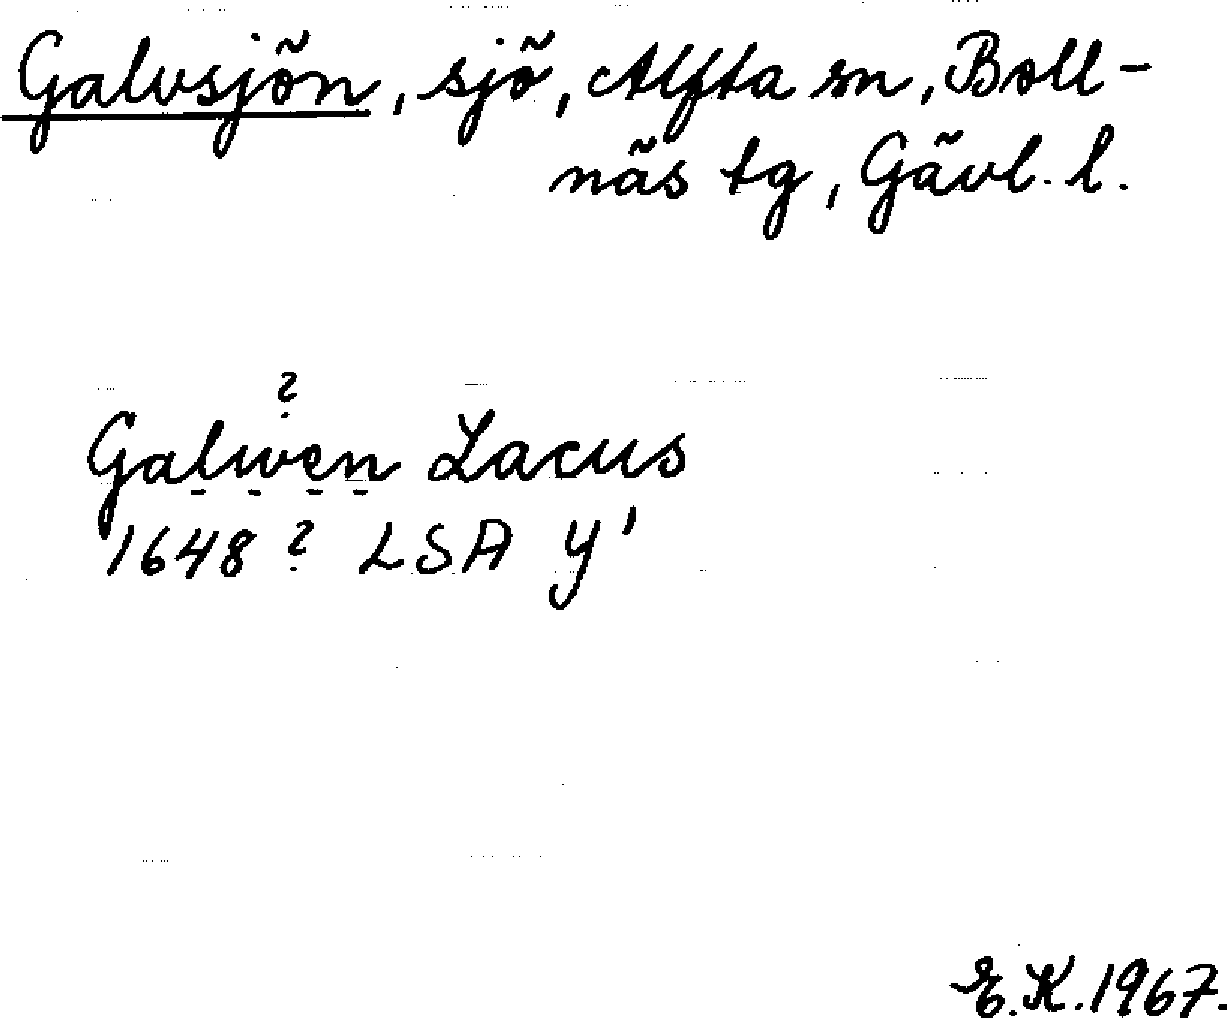 Galvsjön, sjö, Alfta sn, Boll-
näs tg, Gävl. l.
?
Galwen Lacus
1648? LSA Y'
E.K. 1967.